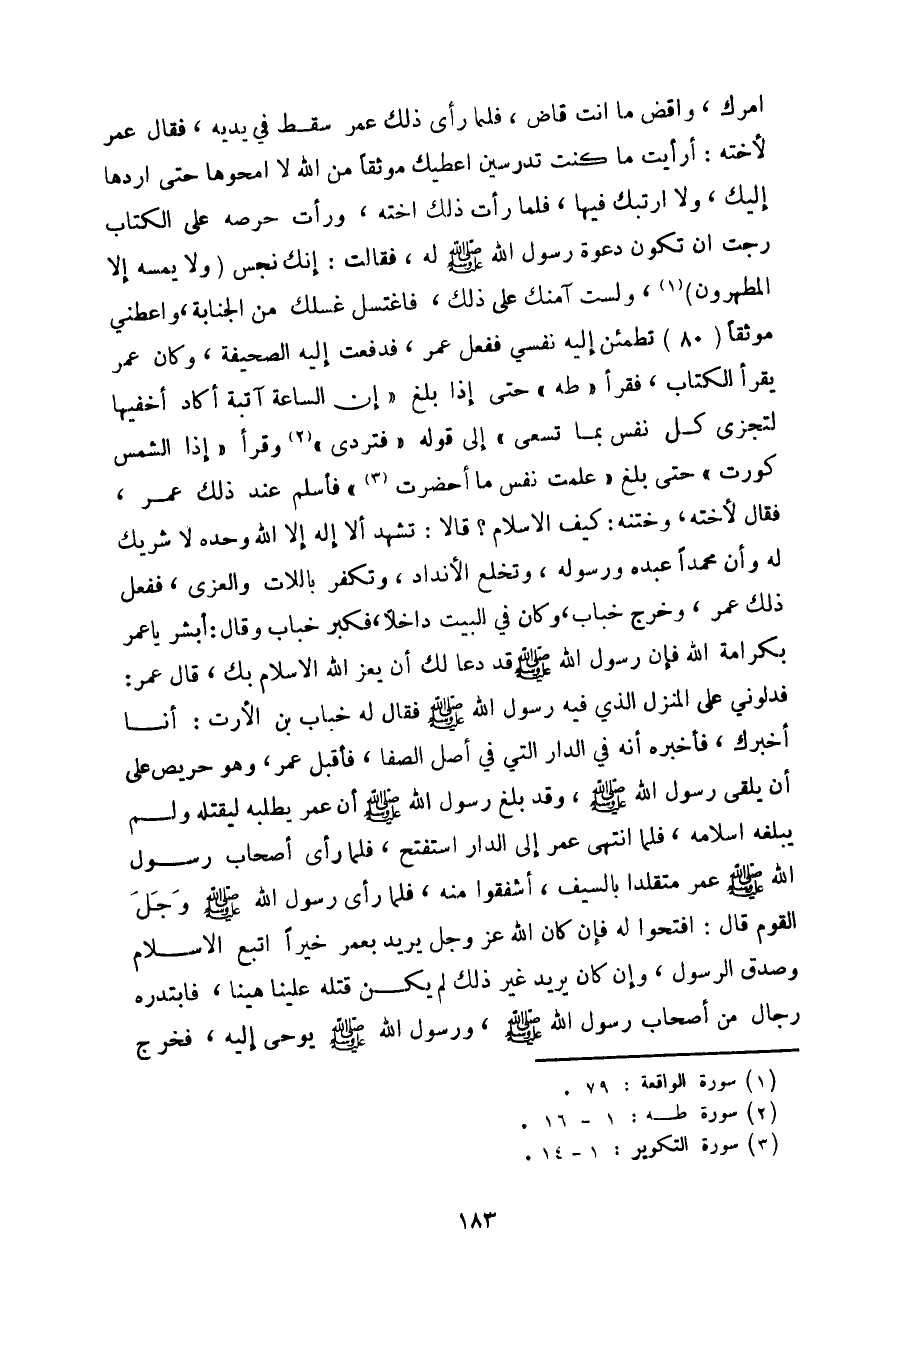 امرك ، واقض ما انت قاض ، فلما رأى ذلك عمر سقـط في يديه ، فقال عمر
لأخته : أرأيت ما كنت تدرسين اعطيك موثقاً من الله لا امحوها حتى اردها
إليك ، ولا ارتبك فيها ، فلما رأت ذلك اخته ، ورأت حرصه على الكتاب
رجت ان تكون دعوة رسول الله ﷺ له ، فقالت : إنك نجس ( ولا يمسه إلا
المطهرون)(١) ، ولست آمنك على ذلك ، فاغتسل غسلك من الجنابة ،واعطني
موثقاً ( ٨٠ ) تطمئن إليه نفسي ففعل عمر ، فدفعت إليه الصحيفة ، وكان عمر
يقرأ الكتاب ، فقرأ « طه » حتى إذا بلغ « إن الساعة آتية أكاد أخفيها
لتجزى كـل نفس بمـا تسعى » إلى قوله « فتردى »(٢) وقرأ « إذا الشمس
كورت » حتى بلغ « علمت نفس ما أحضرت (٣) » فأسلم عند ذلك عمـر ،
فقال لأخته ، وختنه : كيف الاسلام ؟ قالا : تشهد ألا إله إلا الله وحده لا شريك
له وأن محمداً عبده ورسوله ، وتخلع الأنداد ، وتكفر باللات والعزى ، ففعل
ذلك عمر ، وخرج خباب ،وكان في البيت داخلاً ،فكبر خباب وقال :أبشر ياعمر
بكرامة الله فإن رسول الله ﷺ قد دعا لك أن يعز الله الاسلام بك ، قال عمر :
فدلوني على المنزل الذي فيه رسول الله ﷺ فقال له خباب بن الأرت : أنـــا
أخبرك ، فأخبره أنه في الدار التي في أصل الصفا ، فأقبل عمر ، وهو حريص على
أن يلقى رسول الله ﷺ ، وقد بلغ رسول الله ﷺ أن عمر يطلبه ليقتله ولـــم
يبلغه اسلامه ، فلما انتهى عمر إلى الدار استفتح ، فلما رأى أصحاب رســـول
الله ﷺ عمر متقلدا بالسيف ، أشفقوا منه ، فلما رأى رسول الله ﷺ وَجَلَ
القوم قال : افتحوا له فإن كان الله عز وجل يريد بعمر خيراً اتبع الاســـلام
وصدق الرسول ، وإن كان يريد غير ذلك لم يكـــن قتله علينا هينا ، فابتدره
رجال من أصحاب رسول الله ﷺ ، ورسول الله ﷺ يوحى إليه ، فخرج
(١) سورة الواقعة : ٧٩ .
(٢) سورة طــه : ١ – ١٦ .
(٣) سورة التكوير : ١ – ١٤ .
١٨٣